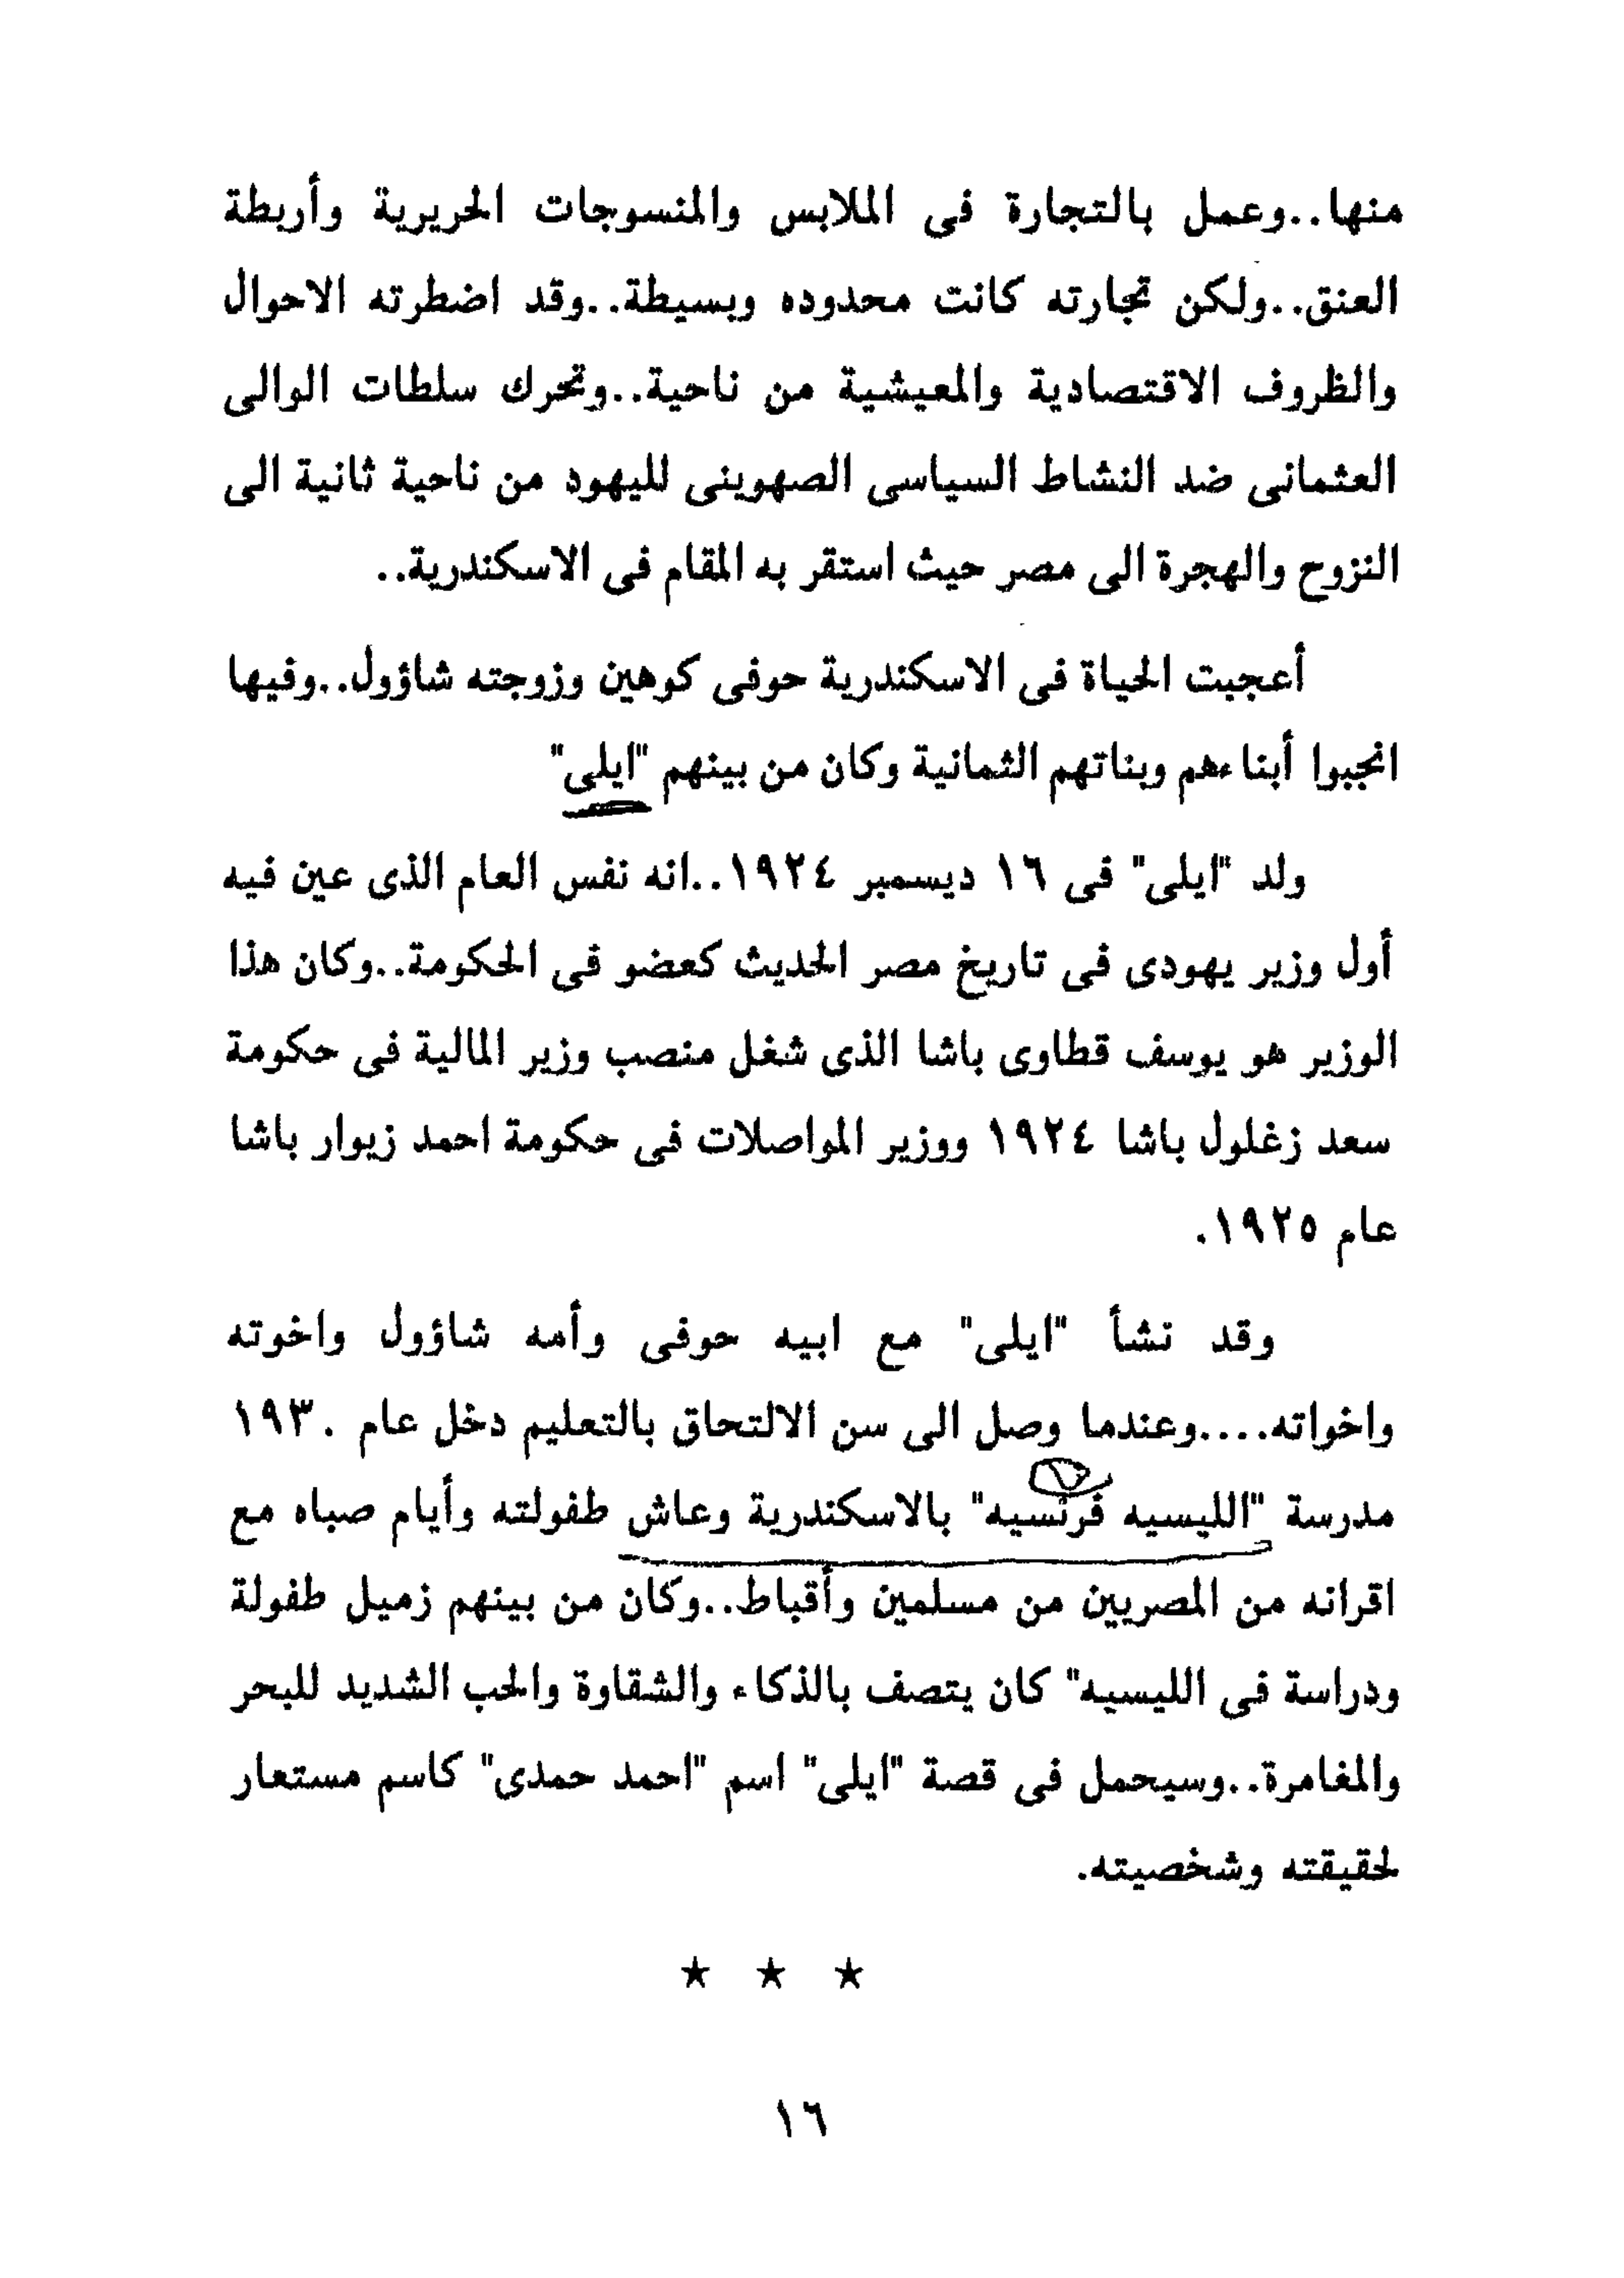 منها..وعمل بالتجارة فى الملابس والمنسوجات الحريرية وأربطة
العنق..ولكن تجارته كانت محدوده وبسيطة..وقد اضطرته الاحوال
والظروف الاقتصادية والمعيشية من ناحية..وتحرك سلطات الوالى
العثمانى ضد النشاط السياسى الصهوينى لليهود من ناحية ثانية الى
النزوح والهجرة الى مصر حيث استقر به المقام فى الاسكندرية..
أعجبت الحياة فى الاسكندرية حوفى كوهين وزوجته شاؤول..وفيها
انجبوا أبناءهم وبناتهم الثمانية وكان من بينهم "ايلى"
ولد "ايلى" فى ١٦ ديسمبر ١٩٢٤..انه نفس العام الذى عين فيه
أول وزير يهودى فى تاريخ مصر الحديث كعضو فى الحكومة..وكان هذا
الوزير هو يوسف قطاوى باشا الذى شغل منصب وزير المالية فى حكومة
سعد زغلول باشا ١٩٢٤ ووزير المواصلات فى حكومة احمد زيوار باشا
عام ١٩٢٥.
وقد نشأ "ايلى" مع ابيه حوفى وأمه شاؤول واخوته
واخواته....وعندما وصل الى سن الالتحاق بالتعليم دخل عام ١٩٣٠
مدرسة "الليسيه فرنسيه" بالاسكندرية وعاش طفولته وأيام صباه مع
اقرانه من المصريين من مسلمين وأقباط..وكان من بينهم زميل طفولة
ودراسة فى الليسيه" كان يتصف بالذكاء والشقاوة والحب الشديد للبحر
والمغامرة..وسيحمل فى قصة "ايلى" اسم "احمد حمدى" كاسم مستعار
لحقيقته وشخصيته.
★ ★ ★
١٦